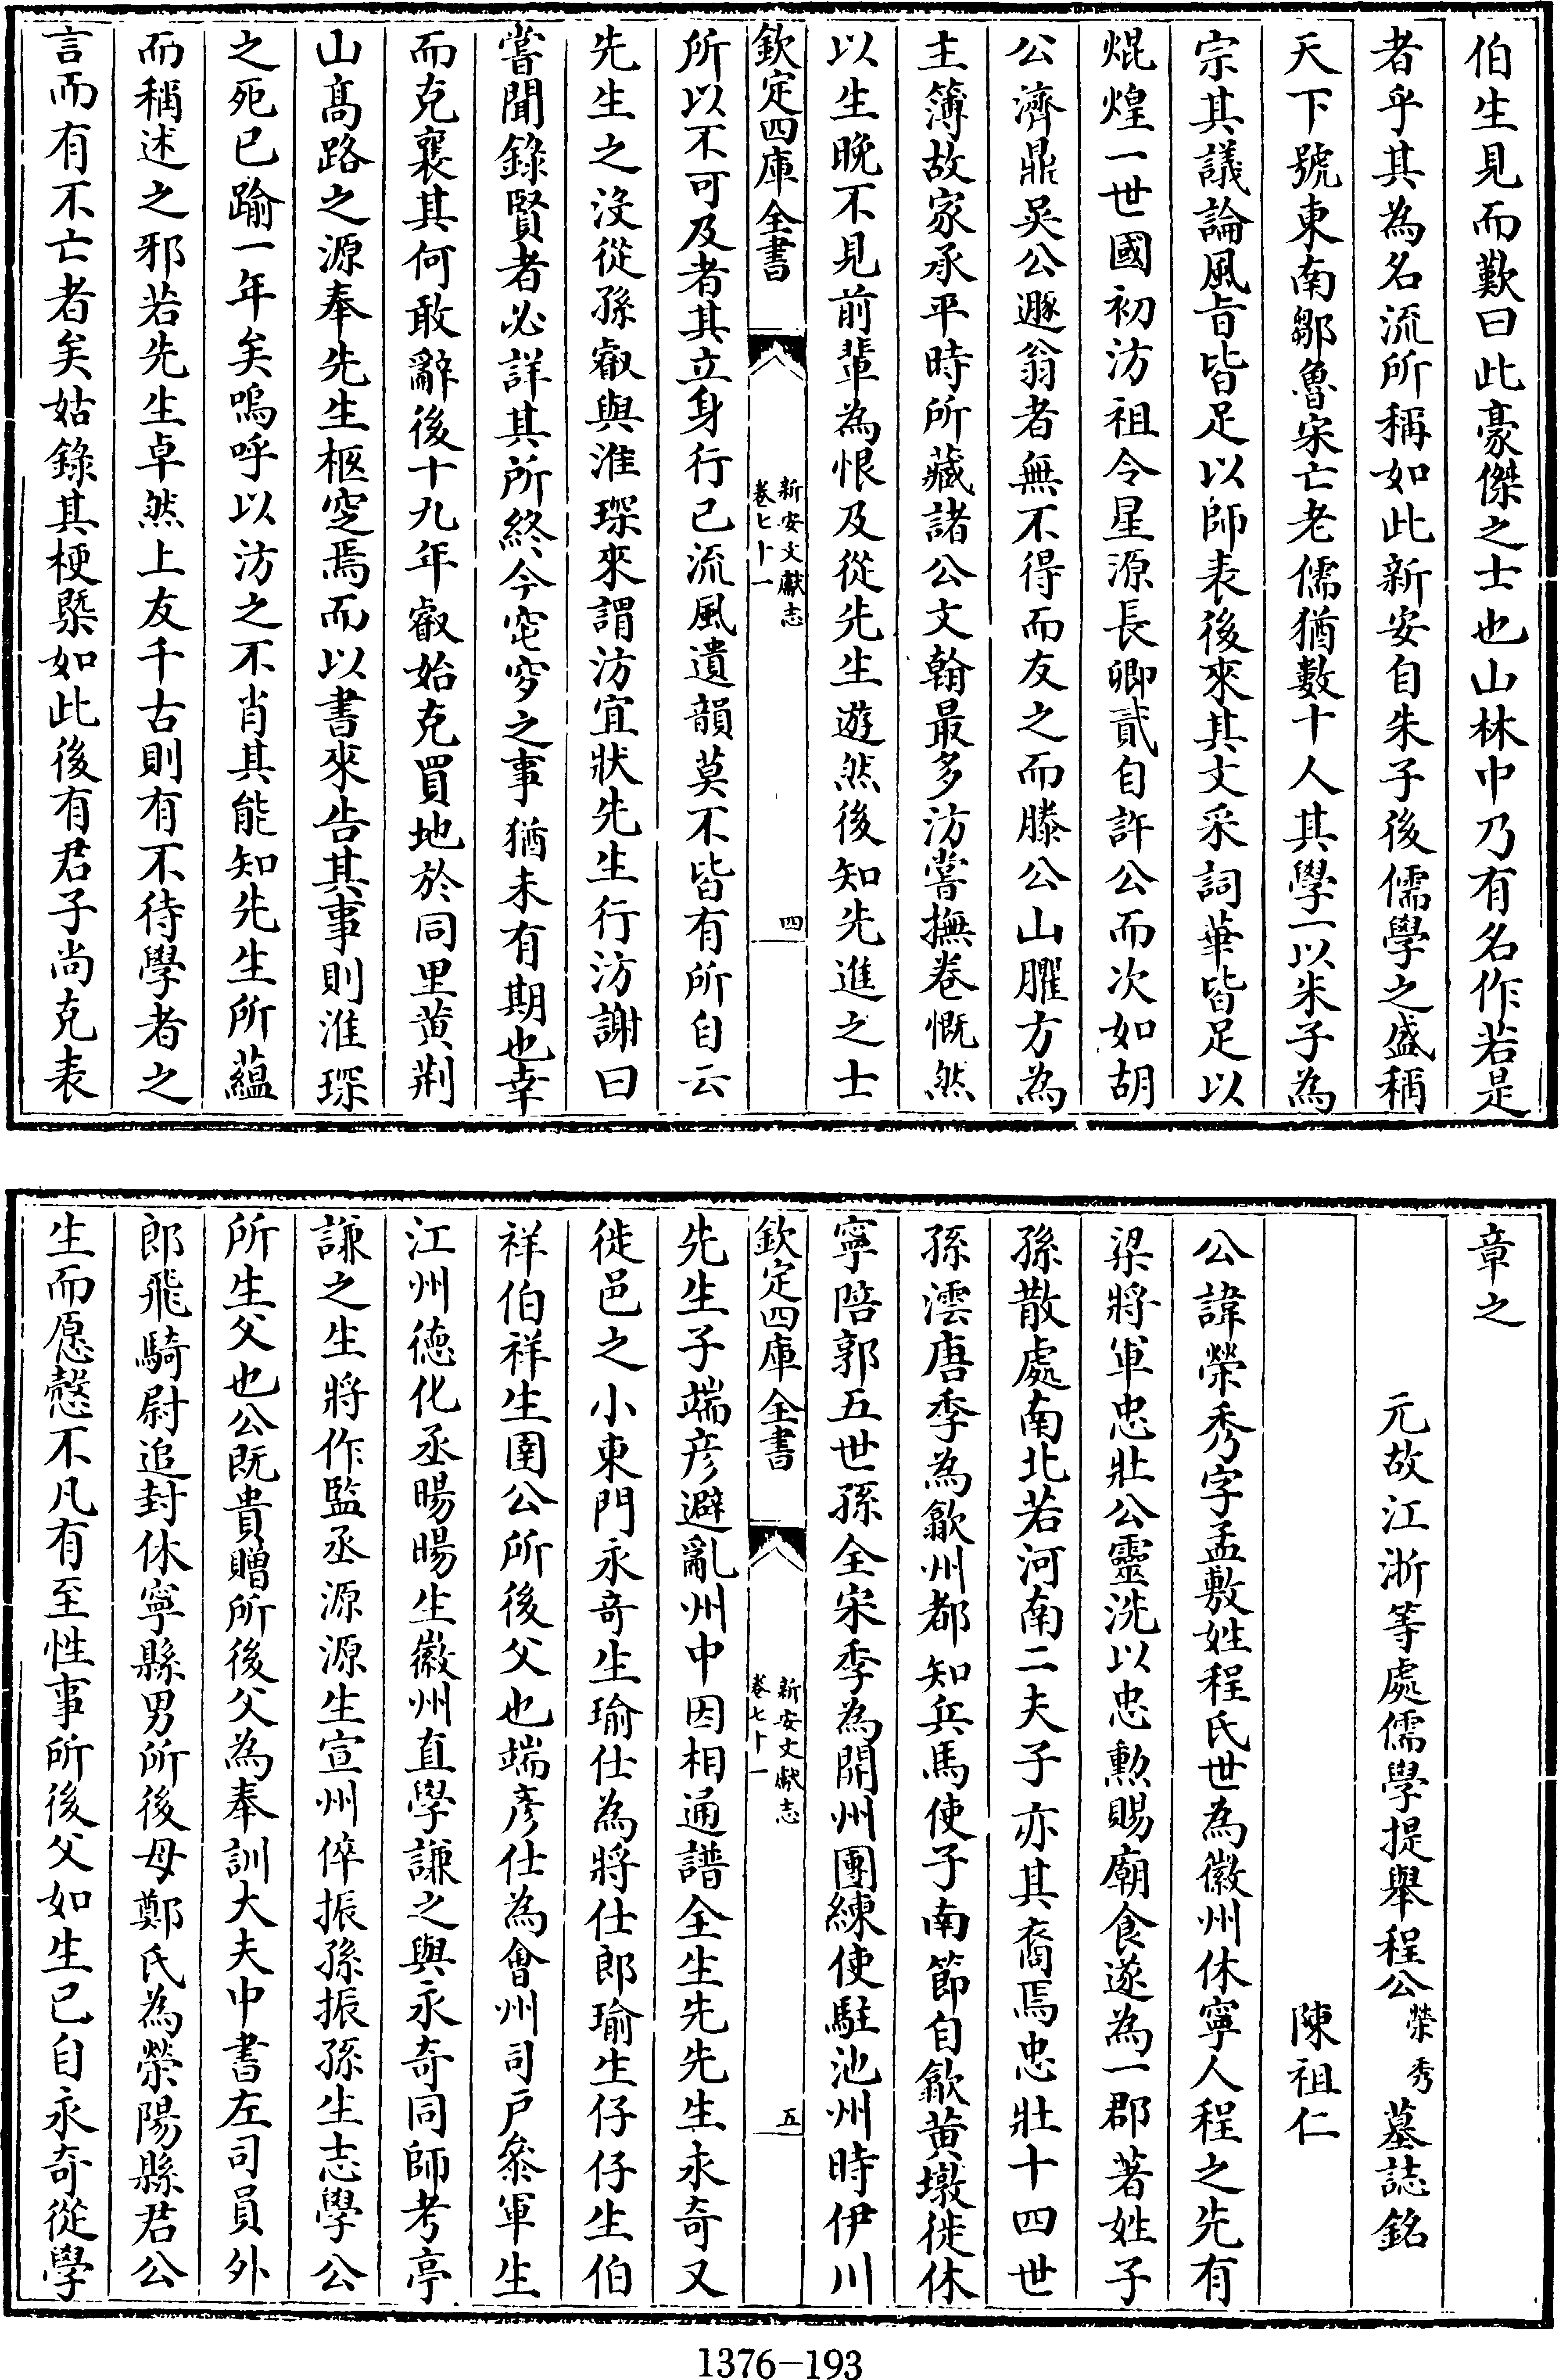 伯生見而歎曰此豪傑之士也山林中乃有名作若是
者乎其為名流所稱如此新安自朱子後儒學之盛稱
天下號東南鄒魯宋亡老儒猶數十人其學一以朱子為
宗其議論風旨皆足以師表後來其文采詞華皆足以
焜煌一世國初汸祖令星源長卿貳自許公而次如胡
公濟鼎吳公遯翁者無不得而友之而滕公山臞方為
主簿故家承平時所藏諸公文翰最多汸嘗撫卷慨然
以生晚不見前輩為恨及從先生遊然後知先進之士
欽定四庫全書
新安文獻志
卷七十一
四
所以不可及者其立身行己流風遺韻莫不皆有所自云
先生之沒從孫叡與淮琛來謂汸宜狀先生行汸謝曰
嘗聞錄賢者必詳其所終今窀穸之事猶未有期也幸
而克襄其何敢辭後十九年叡始克買地於同里黄荆
山髙路之源奉先生柩窆焉而以書來告其事則淮琛
之死已踰一年矣嗚呼以汸之不肖其能知先生所蘊
而稱述之邪若先生卓然上友千古則有不待學者之
言而有不亡者矣姑錄其梗槩如此後有君子尚克表
章之
元故江浙等處儒學提舉程公榮秀墓誌銘
陳祖仁
公諱榮秀字孟敷姓程氏世為徽州休寧人程之先有
梁將軍忠壯公靈洗以忠勲賜廟食遂為一郡著姓子
孫散處南北若河南二夫子亦其裔焉忠壯十四世
孫澐唐季為歙州都知兵馬使子南節自歙黄墩徙休
寧陪郭五世孫全宋季為閞州團練使駐池州時伊川
欽定四庫全書
新安文獻志
卷七十一
五
先生子端彦避亂州中因相通譜全生先先生永奇又
徙邑之小東門永奇生瑜仕為將仕郎瑜生仔仔生伯
祥伯祥生圉公所後父也端彦仕為會州司戶參軍生
江州德化丞暘暘生徽州直學謙之與永奇同師考亭
謙之生將作監丞源源生宣州倅振孫振孫生志學公
所生父也公既貴贈所後父為奉訓大夫中書左司員外
郎飛騎尉追封休寧縣男所後母鄭氏為滎陽縣君公
生而愿慤不凡有至性事所後父如生已自永奇從學
1376-193